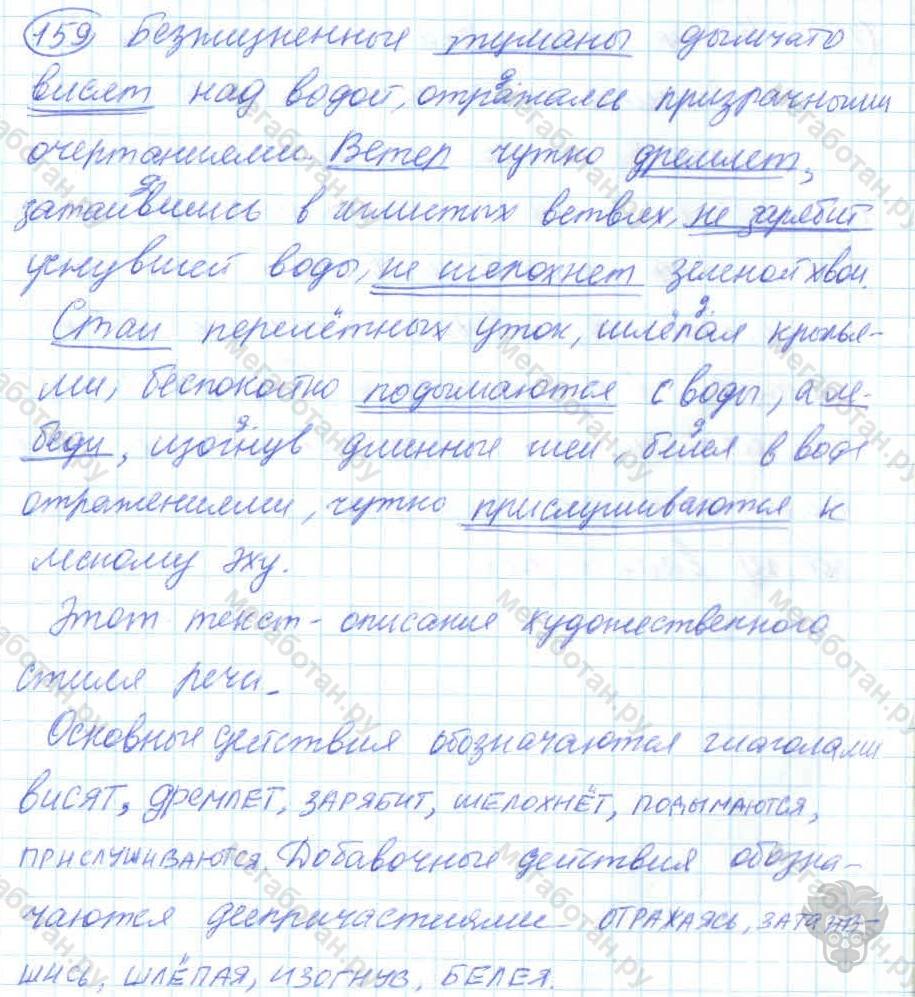 159 Безжизненные туманы дымчато
висят над водой, отражаясь призрачными
очертаниями. Ветер чутко дремлет,
затаившись в иглистых ветвях, не зарябит
уснувшей воды, не шелохнет зеленой хвои.
Стаи перелётных уток, шлёпая крылья-
ми, беспокойно подымаются с воды, а ле-
беди, изогнув длинные шеи, белея в воде
отражениями, чутко прислушиваются к
лесному эху.
Этот текст - описание художественного
стиля речи.
Основные действия обозначаются глаголами
ВИСЯТ, ДРЕМЛЕТ, ЗАРЯБИТ, ШЕЛОХНЁТ, ПОДЫМАЮТСЯ,
ПРИСЛУШИВАЮТСЯ. Добавочные действия обозна-
чаются деепричастиями ОТРАЖАЯСЬ, ЗАТАИВ-
ШИСЬ, ШЛЁПАЯ, ИЗОГНУВ, БЕЛЕЯ.